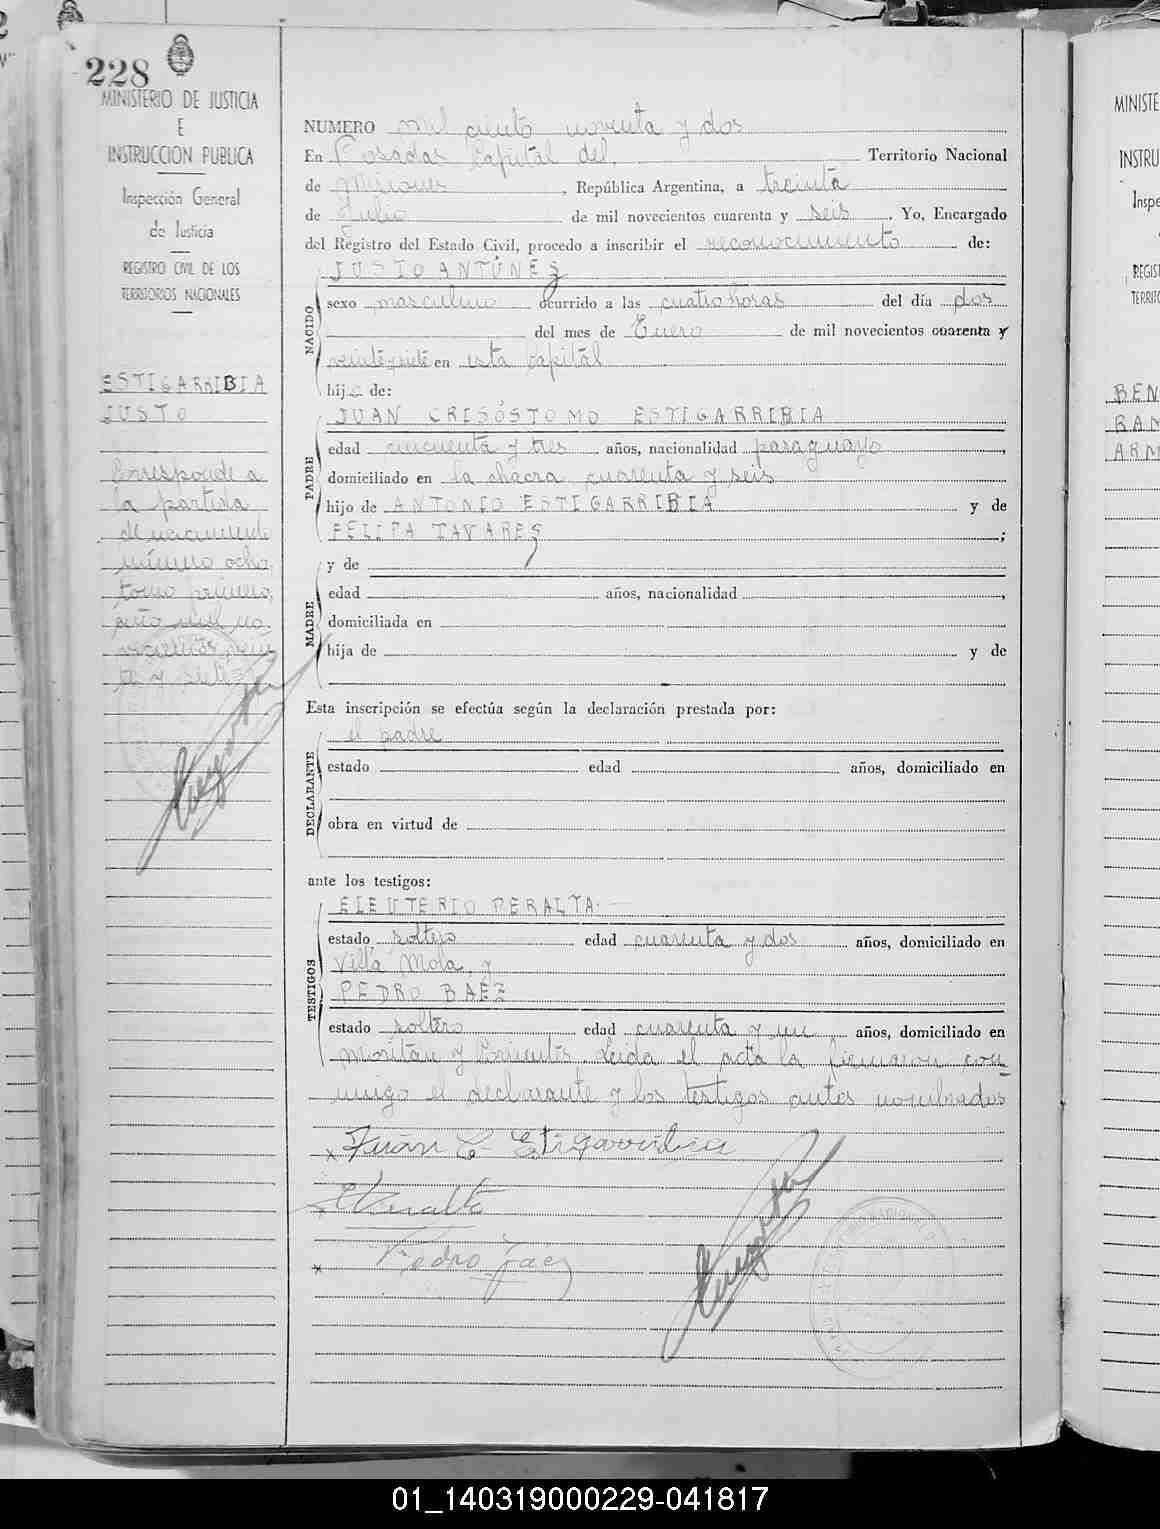 228
MINISTERIO DE JUSTICIA
E
INSTRUCCION PUBLICA
Inspección General
de Justicia
REGISTRO CIVIL DE LOS
TERRITORIOS NACIONALES
ESTIGARRIBIA
JUSTO
Corresponde a
la partida
de nacimiento
número ocho,
tomo primero,
año mil no-
vecientos vein
te y siete
NUMERO mil ciento noventa y dos
En Posadas Capital del Territorio Nacional
de Misiones, República Argentina, a treinta
de Julio de mil novecientos cuarenta y seis. Yo, Encargado
del Registro del Estado Civil, procedo a inscribir el reconocimiento de:
NACIDO
JUSTO ANTÚNEZ
sexo masculino ocurrido a las cuatro horas del día dos
del mes de Enero de mil novecientos cuarenta y
veinte y siete en esta capital
hijo de:
PADRE
JUAN CRISÓSTOMO ESTIGARRIBIA
edad cincuenta y tres años, nacionalidad paraguayo,
domiciliado en la chacra cuarenta y seis
hijo de ANTONIO ESTIGARRIBIA y de
FELIPA TAVAREZ;
MADRE
y de
edad años, nacionalidad,
domiciliada en
hija de y de
Esta inscripción se efectúa según la declaración prestada por:
DECLARANTE
el padre
estado edad años, domiciliado en
obra en virtud de
ante los testigos:
TESTIGOS
ELEUTERIO PERALTA
estado soltero edad cuarenta y dos años, domiciliado en
Villa Mola, y
PEDRO BAEZ
estado soltero edad cuarenta y un años, domiciliado en
Moritán y Corrientes. Leida el acta la firmaron con-
migo el declarante y los testigos antes nombrados
x Juan C Etigarribia
x EPeralta
x Pedro Baez
MINISTE
INSTRU
Inspe
REGIST
TERRITO
BEN
RAM
ARM
01_140319000229-041817